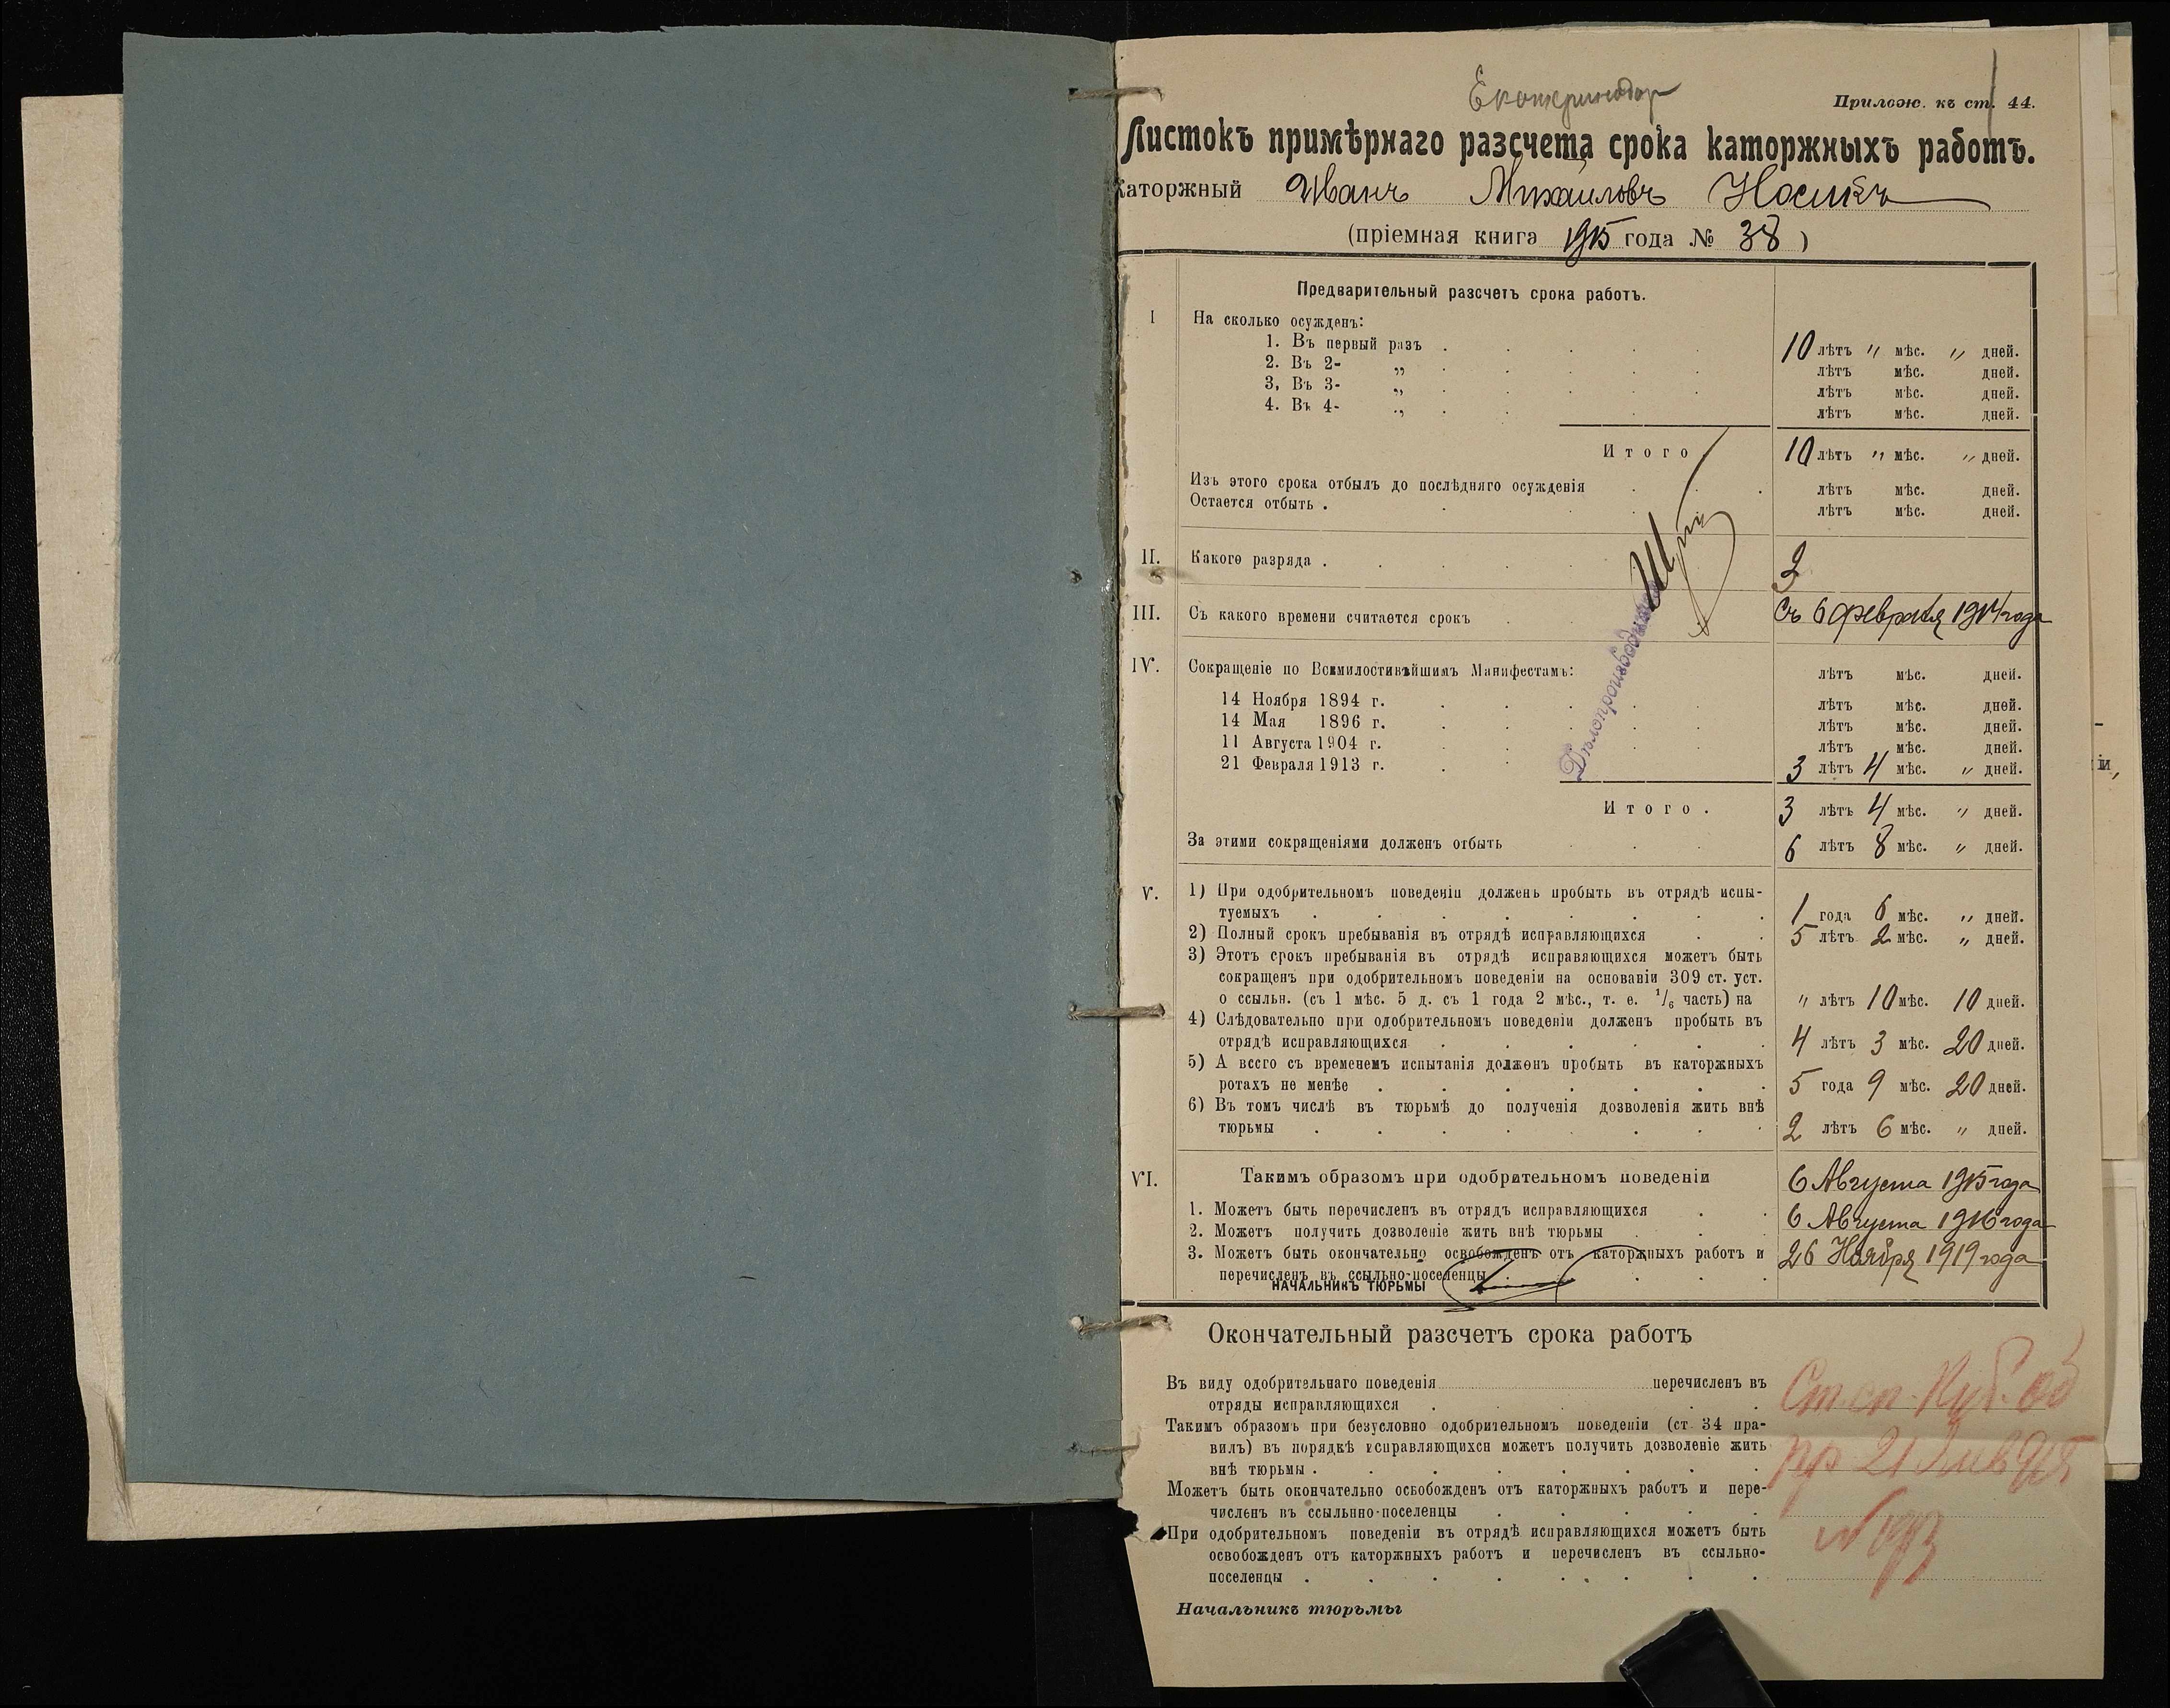 Екатеринодар
Прилож. къ ст. 44.
Листокъ примѣрнаго разсчета срока каторжныхъ работъ.
Каторжный Иванъ Михайловъ
(пріемная книга 1915 года № 38)
Предварительный разсчетъ срока работъ.
I На сколько осужденъ:
1. Въ первый разъ . . . . . 10 лѣтъ " мѣс. " дней.
2. Въ 2- „ . . . . . лѣтъ мѣс. дней.
3, Въ 3- „ . . . . . лѣтъ мѣс. дней.
4. Въ 4- „ . . . лѣтъ мѣс. дней.
Итого. 10 лѣтъ " мѣс. " дней.
Изъ этого срока отбылъ до послѣдняго осужденія . . . лѣтъ мѣс. дней.
Остается отбыть . . . . лѣтъ мѣс. дней.
II. Какого разряда . . . . . 2
III. Съ какого времени считается срокъ . . Съ 6 февраля 1914 года
Дѣлопроизводитель
IV. Сокращеніе по Всемилостивѣйшимъ Манифестамъ: лѣтъ мѣс. дней.
14 Ноября 1894 г. . . . . . лѣтъ мѣс. дней.
14 Мая 1896 г. . . . . . лѣтъ мѣс. дней.
11 Августа 1904 г. . . . . . лѣтъ мѣс. дней.
21 Февраля 1913 г. . . 3 лѣтъ 4 мѣс. " дней.
Итого. 3 лѣтъ 4 мѣс. " дней.
За этими сокращеніями долженъ отбыть . . . 6 лѣтъ 8 мѣс. " дней.
V. 1) При одобрительномъ поведеніи долженъ пробыть въ отрядѣ испы-
туемыхъ . . . . . . . . 1 года 6 мѣс. " дней.
2) Полный срокъ пребыванія въ отрядѣ исправляющихся . . 5 лѣтъ 2 мѣс. " дней.
3) Этотъ срокъ пребыванія въ отрядѣ исправяющихся можетъ быть
сокращенъ при одобрительномъ поведеніи на основаніи 309 ст. уст.
о ссыльн. (съ 1 мѣс. 5 д. съ 1 года 2 мѣс., т. е. 1/6 часть) на " лѣтъ 10 мѣс. 10 дней.
4) Слѣдовательно при одобрительномъ поведеніи долженъ пробыть въ
отрядѣ исправляющихся . . . . . . 4 лѣтъ 3 мѣс. 20 дней.
5) А всего съ временемъ испытанія долженъ пробыть въ каторжныхъ
ротахъ не менѣе . . . . . . . 5 года 9 мѣс. 20 дней.
6) Въ томъ числѣ въ тюрьмѣ до полученія дозволенія жить внѣ
тюрьмы . . . . . . . . 2 лѣтъ 6 мѣс. " дней.
VI. Такимъ образомъ при одобрительномъ поведеніи 6 Августа 1915 года
1. Можетъ быть перечисленъ въ отрядъ исправляющихся . . 6 Августа 1916 года
2. Можетъ получить дозволеніе жить внѣ тюрьмы . . .
3. Можетъ быть окончательно освобожденъ отъ каторжныхъ работъ и 26 Ноября 1919 года
перечисленъ въ ссыльно-поселенцы . . . . .
НАЧАЛЬНИКЪ ТЮРЬМЫ
Окончательный разсчетъ срока работъ
Въ виду одобрительнаго поведенія перечисленъ въ
отряды исправляющихся . . . . . .
Такимъ образомъ при безусловно одобрительномъ поведеніи (ст. 34 пра-
вилъ) въ порядкѣ исправляющихся можетъ получить дозволеніе жить
внѣ тюрьмы . . . . . . . .
Можетъ быть окончательно освобожденъ отъ каторжныхъ работъ и пере-
численъ въ ссыльнно-поселенцы . . . . .
При одобрительномъ поведеніи въ отрядѣ исправляющихся можетъ быть
освобожденъ отъ каторжныхъ работъ и перечисленъ въ ссыльно-
поселенцы . . . . . . . .
Начальникъ тюрьмы